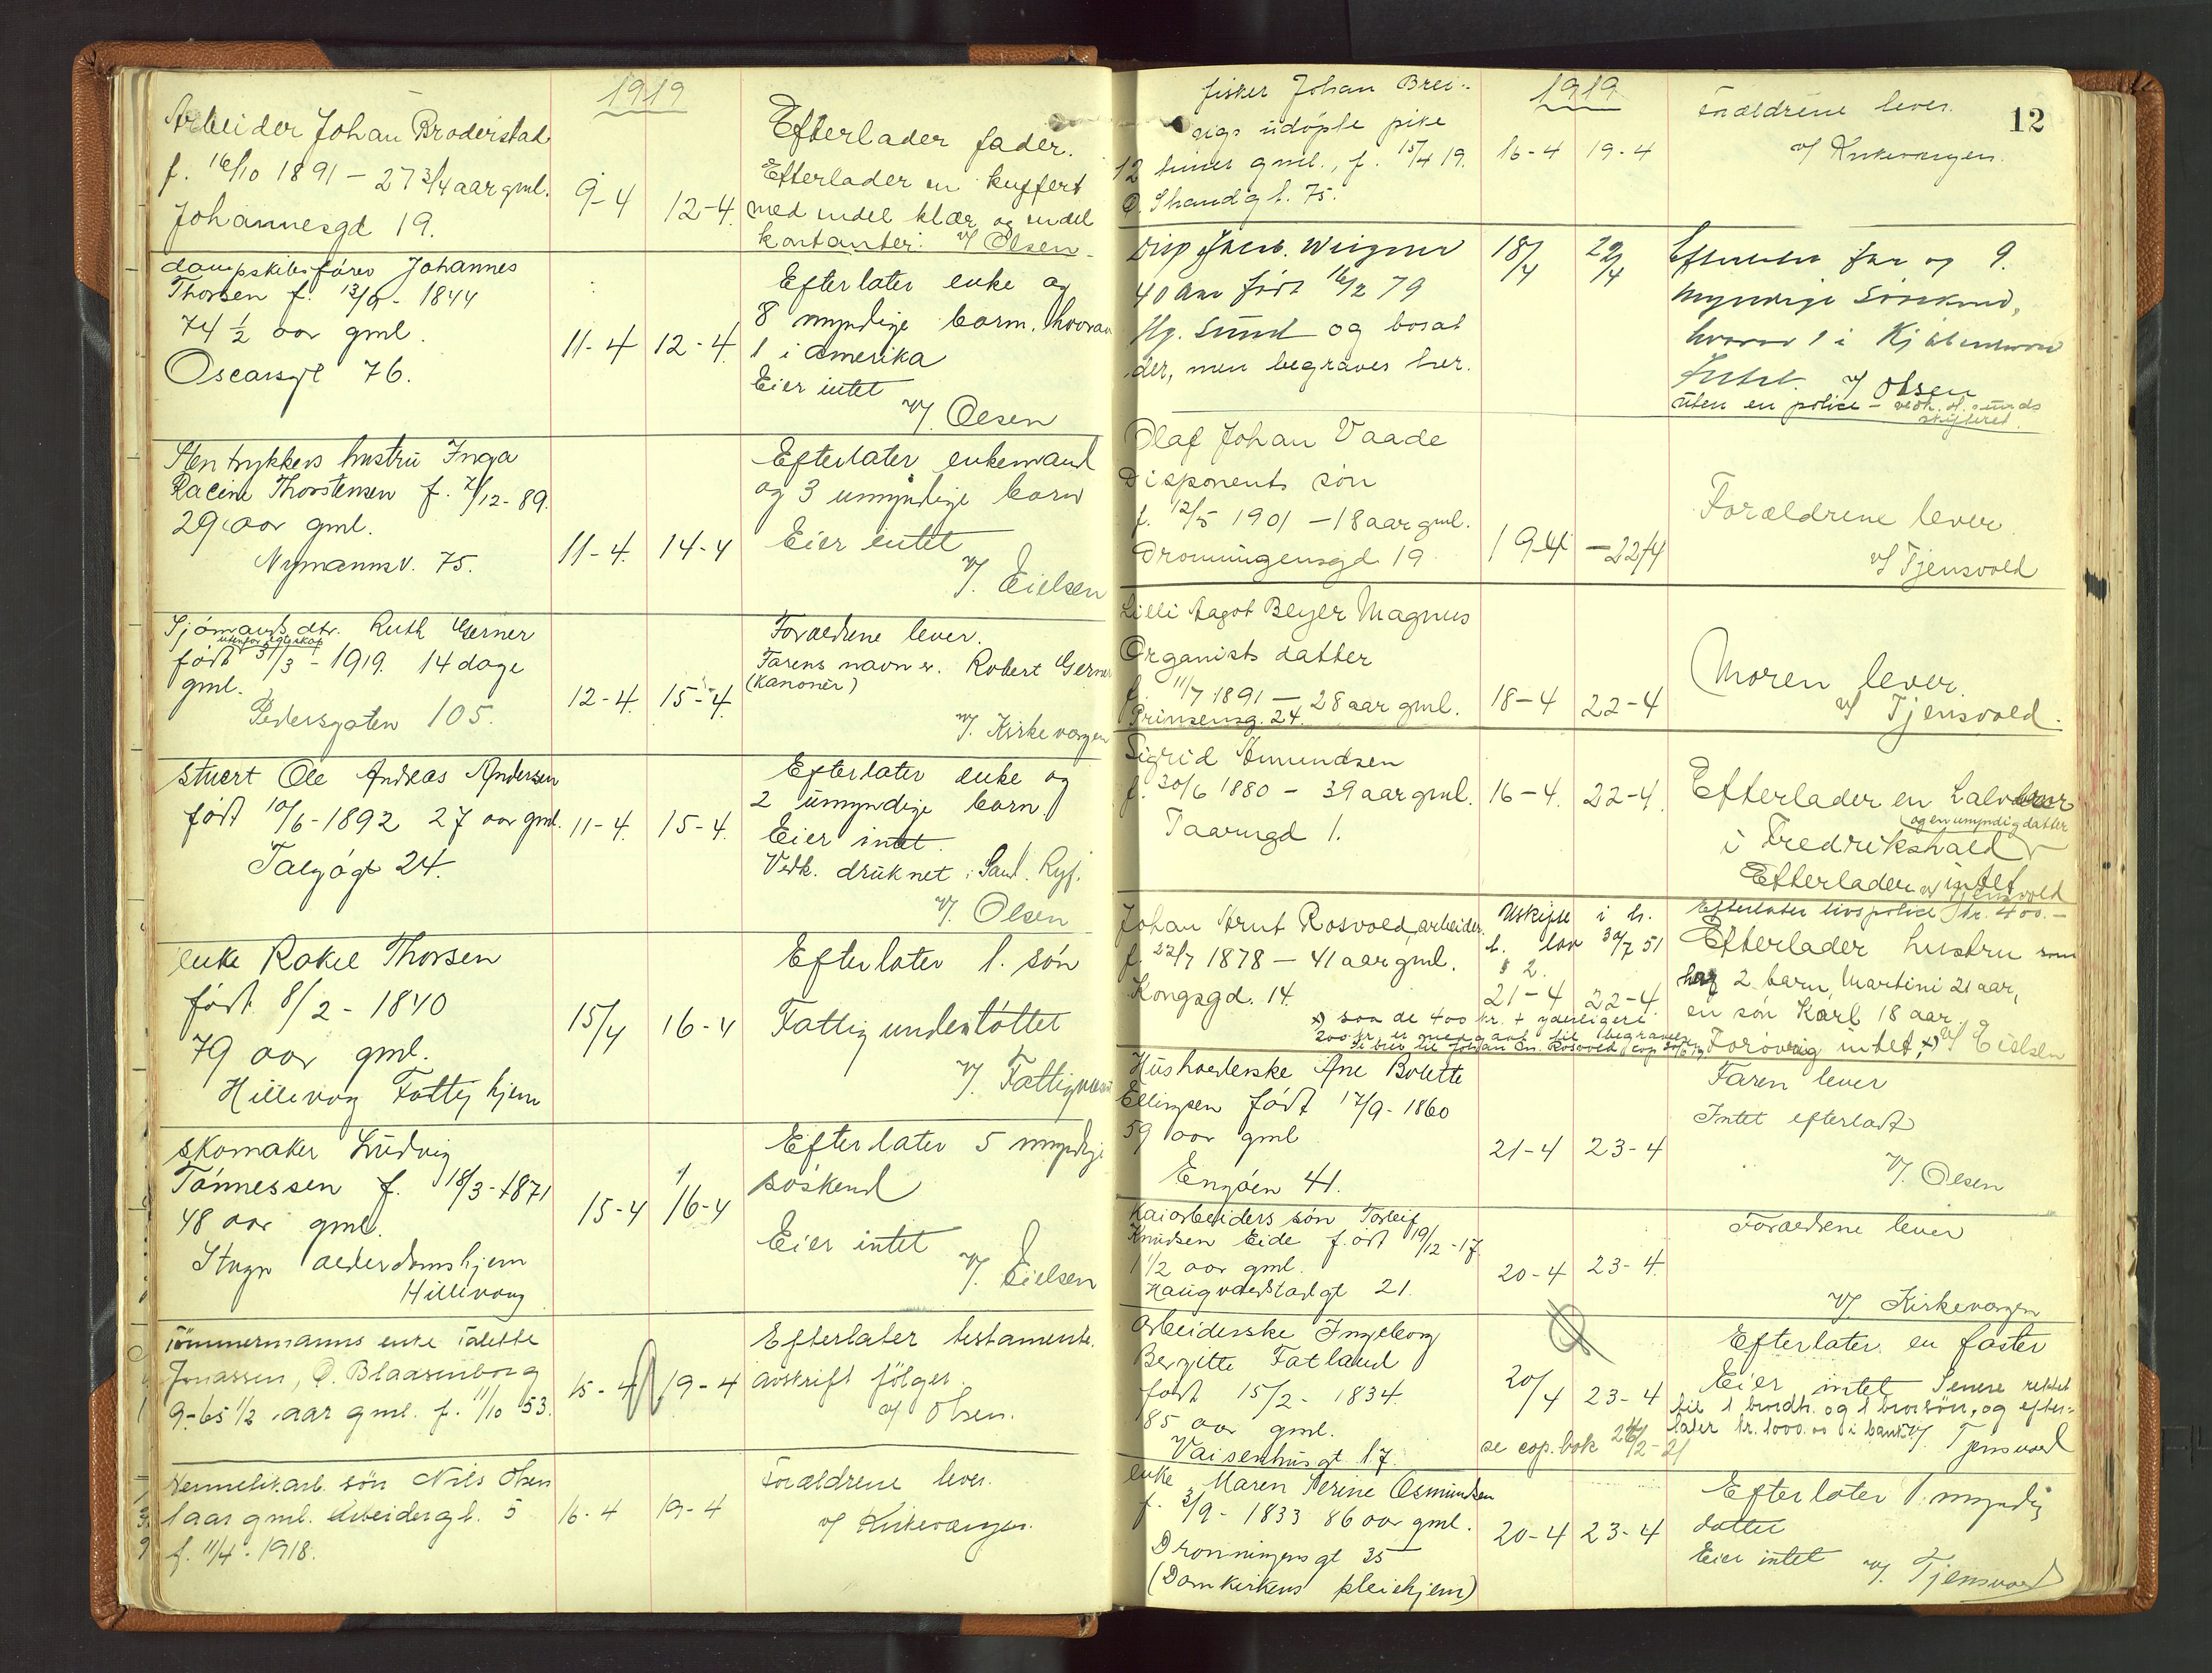 1919
Arbeider Johan Broderstad
f. 16/10 1891 – 27 3/4 aar gml.
Johannesgd 19.
9-4 12-4
Efterlader fader.
Efterlader en kuffert
med endel klær og endel
kontanter. v/ Olsen
dampskibsfører Johannes
Thorsen f. 13/9 - 1844
74 1/2 aar gml.
Oscarsgt 76.
11-4 12-4
Efterlater enke og
8 myndige barn, hvorav
1 i Amerika
Eier intet
v/. Olsen
Stentrykkers hustru Inga
Racine Thorstensen f. 7/12-89.
29 aar gml.
Nymannsv. 75.
11-4. 14-4
Efterlater enkemand
og 3 umyndige barn
Eier intet
v/. Eielsen
Sjømands dtr. Ruth Gerner
utenfor egteskap
født 31/3 - 1919. 14 dage
gml.
Pedersgaten 105.
12-4. 15-4.
Forældrene lever.
Farens navn er. Robert Gerner
(Kanoner)
v/. Kirkevergen
stuert Ole Andreas Andersen
født 10/6-1892 27 aar gml.
Talgøgt 24.
11-4. 15-4.
Efterlater enke og
2 umyndige barn
Eier intet.
Vedk. druknet i Sand. Ryf.
v/. Olsen
enke Rakel Thorsen
født 8/2 - 1840
79 aar gml.
Hillevaag Fattighjem
15/4 16-4
Efterlater 1. søn
Fattigunderstøttet
v/. Fattigvæsen
skomaker Ludvig
Tønnessen f. 18/3-1871
48 aar gml.
Stvgr alderdomshjem
Hillevaag
15-4 16-4
Efterlater 5 myndige
søskend
Eier intet
v/. Eielsen
Tømmermanns enke Talette
Jonassen, Ø. Blaasenborg
9 - 65 1/2 aar gml. f. 11/10 53.
15-4 19-4
Efterlater testamente.
Avskrift følger.
v/ Olsen.
Hermetikarb. søn Nils Olsen
1 aar gml. Arbeidergt. 5
f. 11/4 - 1918.
16-4 19-4
Forældrene lever.
v/ Kirkevergen.
12
1919
fisker Johan Brei-
vigs udøpte pike
12 timer gml., f. 15/4 19.
Ø. Strandgt. 75.
16-4 19-4
Forældrene lever.
v/ Kirkevergen.
Disp Jacob. Wiigner
40 Aar født 16/2 79
Hg. Sund og bosat
der, men begraves her.
18/4 22/4
Efterlater far og 9.
myndige Søskend,
hvorav 1 i Kjøbenhavn
Intet. v/ Olsen
uten en police – vedk. H. sunds
skifteret.
Olaf Johan Vaade
Disponents søn
f. 12/5 1901 – 18 aar gml.
Dronningensgd. 19
19-4 – 22/4
Forældrene lever
v/ Tjensvold
Lilli Aagot Beyer Magnus
Organists datter
f. 11/7 1891 – 28 aar gml.
Prinsensg. 24.
18-4 22-4
Moren lever.
v/ Tjensvold.
Sigrid Amundsen
f. 30/6 1880 – 39 aar gml.
Taarngd 1.
16-4. 22-4.
Efterlader en halvbror
og en umyndig datter
i Fredrikshald
Efterlader intet
v/ Tjensvold
Johan Arnt Rosvold, arbeider.
f. 22/7 1878 – 41 aar gml.
Kongsgd. 14.
Uskifte i h.
t. lov 30/7 51
§ 2.
21-4 22-4.
Efterlater livspolice kr. 400.–
Efterlader hustru som
har 2 barn, Martini 21 aar,
en søn Karl 18 aar.
Forøvrig intet, x) v/ Eielsen
x) saa de 400 kr. + yderligere
200 kr er medgaat til begravelsen
Husholderske Ane Bolette
Ellingsen født 17/9-1860
59 aar gml
Engøen 41.
21-4 23-4
Faren lever
Intet efterladt
v/. Olsen
Kaiarbeiders søn Torleif
Knudsen Eide født 19/12-17
1 1/2 aar gml.
Haugvaldstadgt 21.
20-4 23-4.
Forældrene lever
v/. Kirkevergen
Arbeiderske Ingeborg
Bergitte Fatland
født 15/2 - 1834.
85 aar gml.
Vaisenhusgt 17.
20/4 23-4
se cop.bok
Efterlater en faster
Eier intet Senere rettet
til 1 brordtr. og 1 brorsøn, og efter-
later kr. 1000.00 i bank. v/. Tjensvold
enke Maren Serine Osmundsen
f. 3/9 - 1833 86 aar gml.
Dronningensgt 35
(Domkirkens pleiehjem)
20-4 23-4
Efterlater 1. myndig
datter
Eier intet v/. Tjensvold